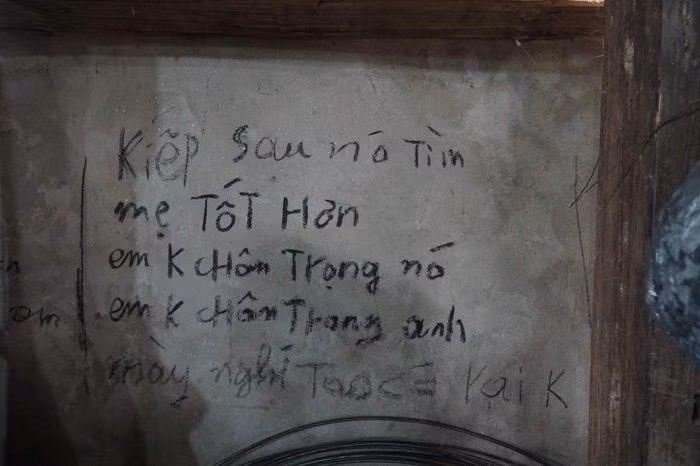 Kiếp sau nó Tìm
mẹ TốT Hơn
em K cHôn Trọng nó
em K cHôn Trọng anh
mày nghỉ Tao có K
om